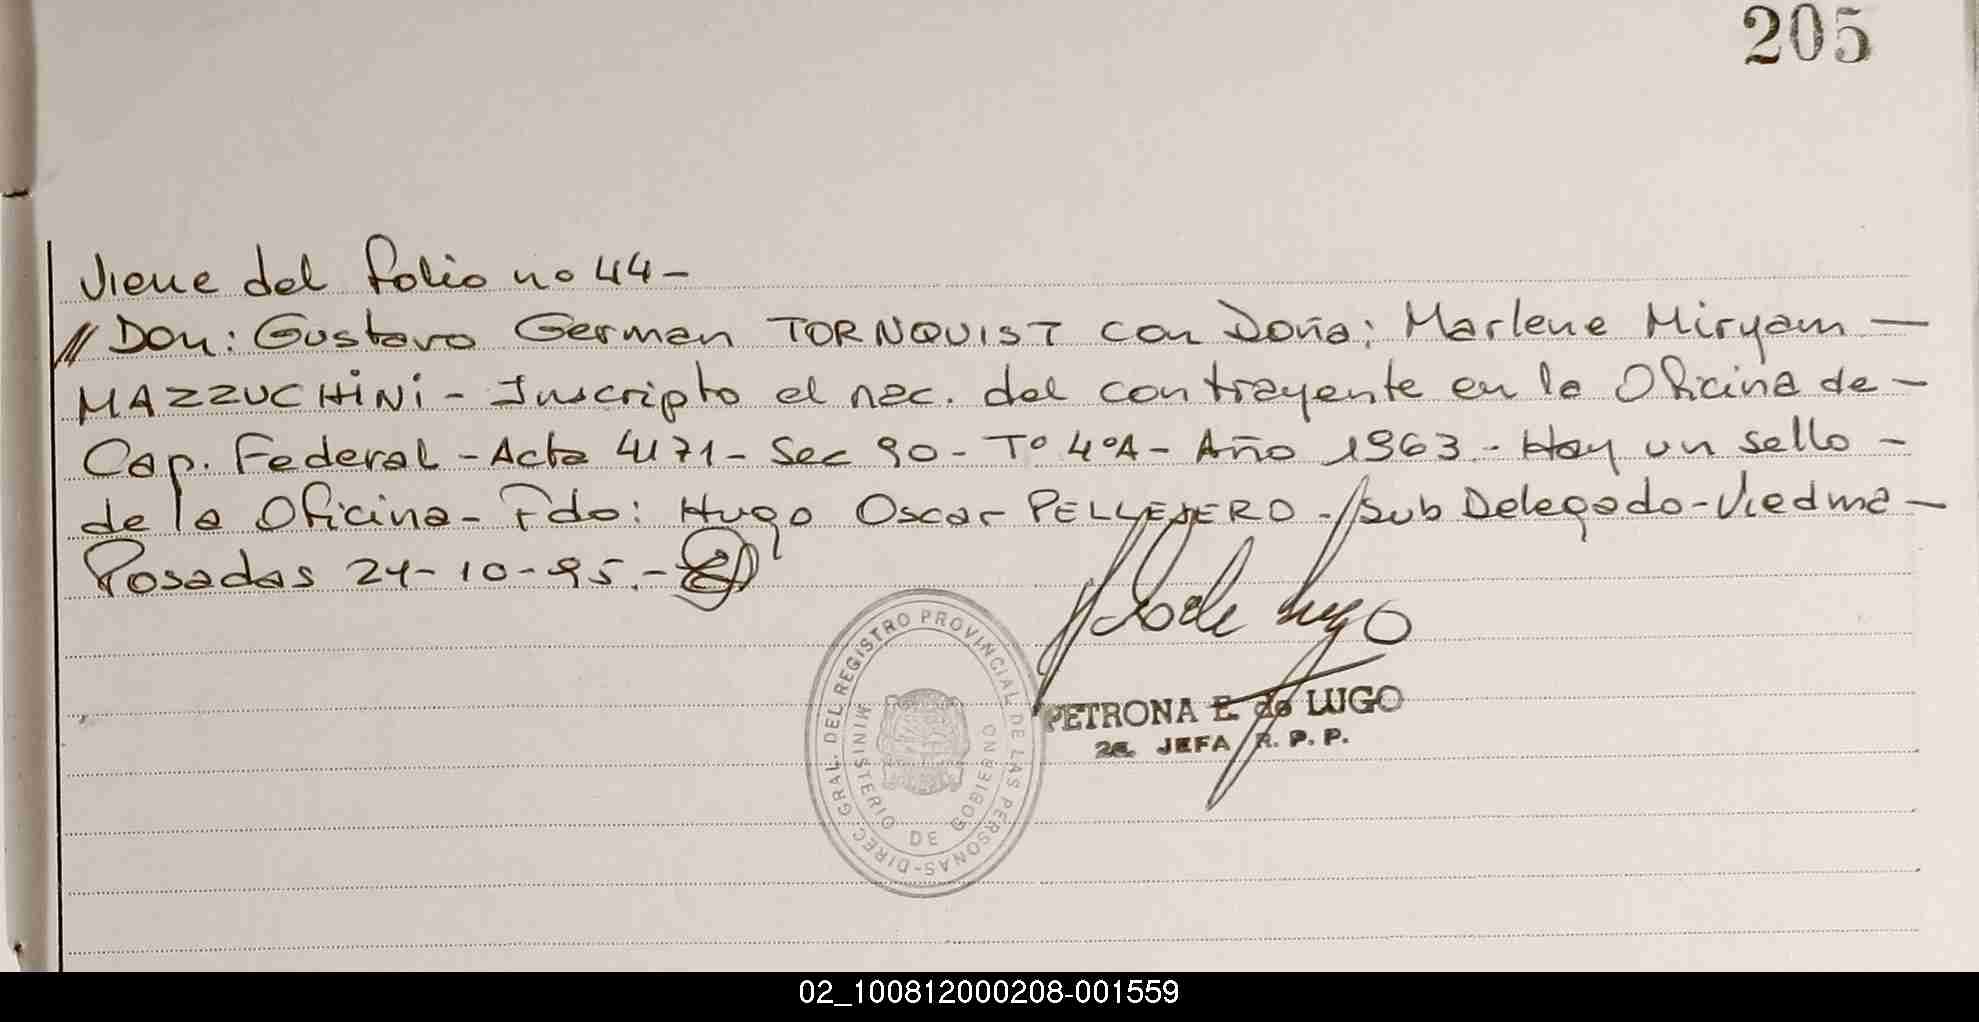 205
Viene del folio no 44-
// Don: Gustavo German TORNQUIST con Doña: Marlene Miryam -
MAZZUCHiNi - Inscripto el nac. del contrayente en la Oficina de -
Cap. Federal - Acta 4171 - Sec 90 - Tº 4ºA - Año 1963 - Hay un sello -
de la Oficina - Fdo: Hugo Oscar PELLEJERO - Sub Delegado - Viedma -
Posadas 24-10-95.-
DIREC. GRAL. DEL REGISTRO PROVINCIAL DE LAS PERSONAS -
MINISTERIO DE GOBIERNO
de Lugo
PETRONA E. de LUGO
2a. JEFA R. P. P.
02_100812000208-001559